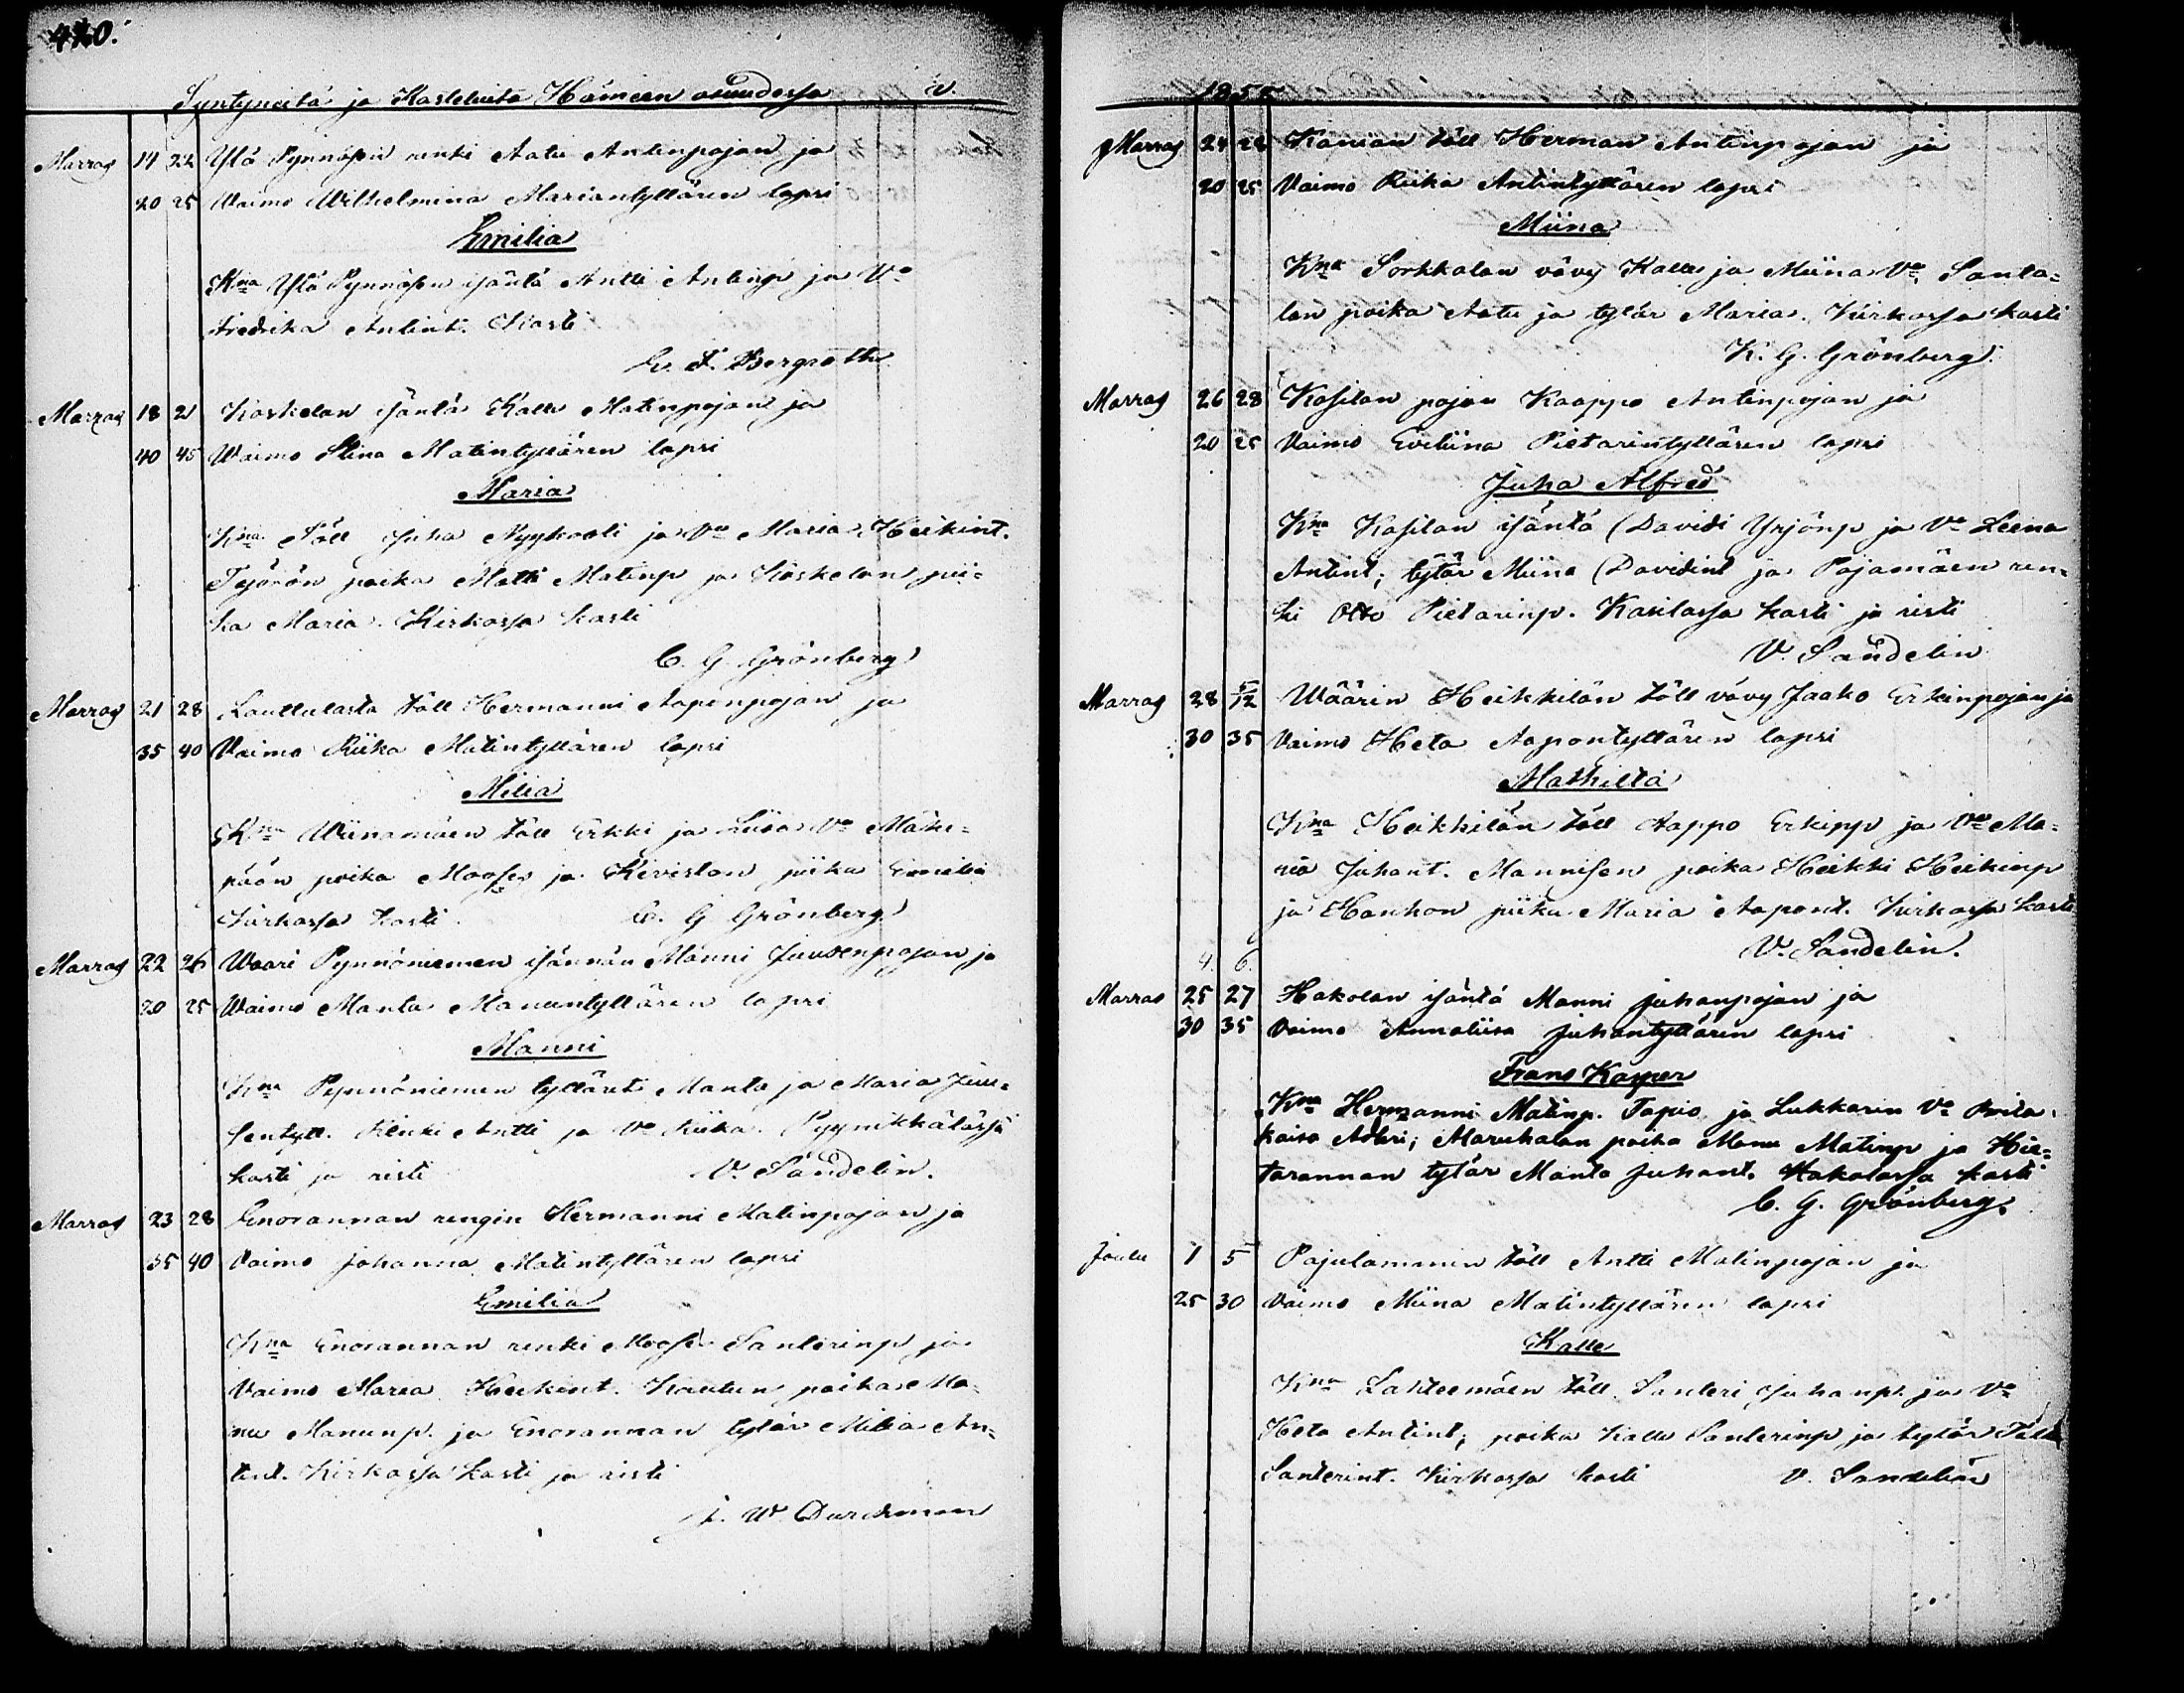 420.
Syntyneitä ja Kastetuita Hämeen osuudessa v.
Marras 14 22 Ylä Pynnösen renki Aatu Antinpojan ja
20 25 Vaimo Wilhelmina Mariantyttären lapsi
Emilia
Kna Ylä Pynnösen isäntä Antti Antinp ja Vo
Fredrika Antint. Kasti
F. Bergroth
Marras 18 21 Koskelan isäntä Kalle Matinpojan ja
40 45 Waimo Stina Matintyttären lapsi
Maria
Kna Töll Juha Nyykooli ja Vo Maria Heikint.
poika Matti Matinp ja Koskelan pii-
ka Maria. Kirkossa kasti
C. G. Grönberg
Marras 21 28 Lauttalasta töll Hermanni Aapenpojan ja
35 40 Vaimo Riika Matintyttären lapsi
Milia
Kna Wiinamäen töll Erkki ja Liisa Vo Mäki-
pään poika Moses ja Keviston piika Emilia
Kirkossa kasti C. G Grönberg
Marras 22 26 Waari Pynnöniemen isännän Manni Juusenpojan ja
20 25 Waimo Manta Manuntyttären lapsi
Manni
Kna Pynnöniemen tyttäret Manta ja Maria Juu-
sentytt. Renki Antti ja Vo Riika. Pyynikkälässä
kasti ja risti V. Sandelin.
Marras 23 28 Enorannan rengin Hermanni Matinpojan ja
35 40 Vaimo Johanna Matintyttären lapsi
Emilia
Kna Enorannan renki Moses Santerinp ja
Vaimo Maria Heikint. poika Ma-
nu Manunp. ja Enorannan tytär Milia An-
tint. Kirkossa kasti ja risti
J. W. Durchman
185
Marras 24 28 Kanian töll Herman Antinpojan ja
20 25 Vaimo Riika Antintyttären lapsi
Miina
Kna Sorkkalan vävy Kalle ja Miina Vo, Santa-
lan poika Aatu ja tytär Maria. Kirkossa kasti
K. G. Grönberg.
Marras 26 28 Kasilan pojan Kaappo Antinpojan ja
20 25 Vaimo Eveliina Pietarintyttären lapsi
Juha Alfred
Kna Kasilan isäntä Davidi Yrjönp ja Vo Leena
Antint; tytär Miina Davidint ja Pajamäen ren-
ki Otto Pietarinp. Kasilassa kasti ja risti
V. Sandelin
Marras 28 5/12 Wäärin Heikkilän töll vävy Jaako Erkinpojan ja
30 35 Vaimo Heta Aapontyttären lapsi
Mathilta
Kna Heikkilän töll Aappo Erkinp ja Vo Ma-
ria Juhant. Mannisen poika Heikki Heikinp
ja Hankon piika Maria Aapont. Kirkossa kasti
V. Sandelin.
4. 6.
Marras 25 27 Hakolan isäntä Manni Juhanpojan ja
30 35 Vaimo Annaliisa Juhantyttären lapsi
Frans Kasper
Kna Hermanni Matinp. Tapio ja Lukkarin Vo
kaisa Adleri; Maruhalan poika Manu Matinp ja Hie-
tarannan tytär Manta Juhant. Hakolassa kasti
C. G. Grönberg.
Joulu 1 5 Pajulammin töll Antti Matinpojan ja
25 30 Vaimo Miina Matintyttären lapsi
Kalle
Kna Lahteemäen töll Santeri Juhanp. ja Vo
Heta Antint; poika Kalle Santerinp ja tytär
Santerint. Kirkossa kasti V. Sandelin